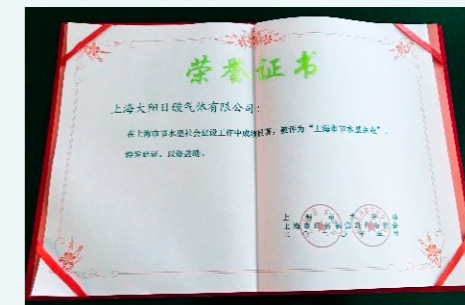 荣誉证书
上海大阳日酸气体有限公司：
在上海市节水型社会建设工作中成绩显著，被评为“上海市节水型企业”，
特发此证，以资鼓励。
上海市水务局